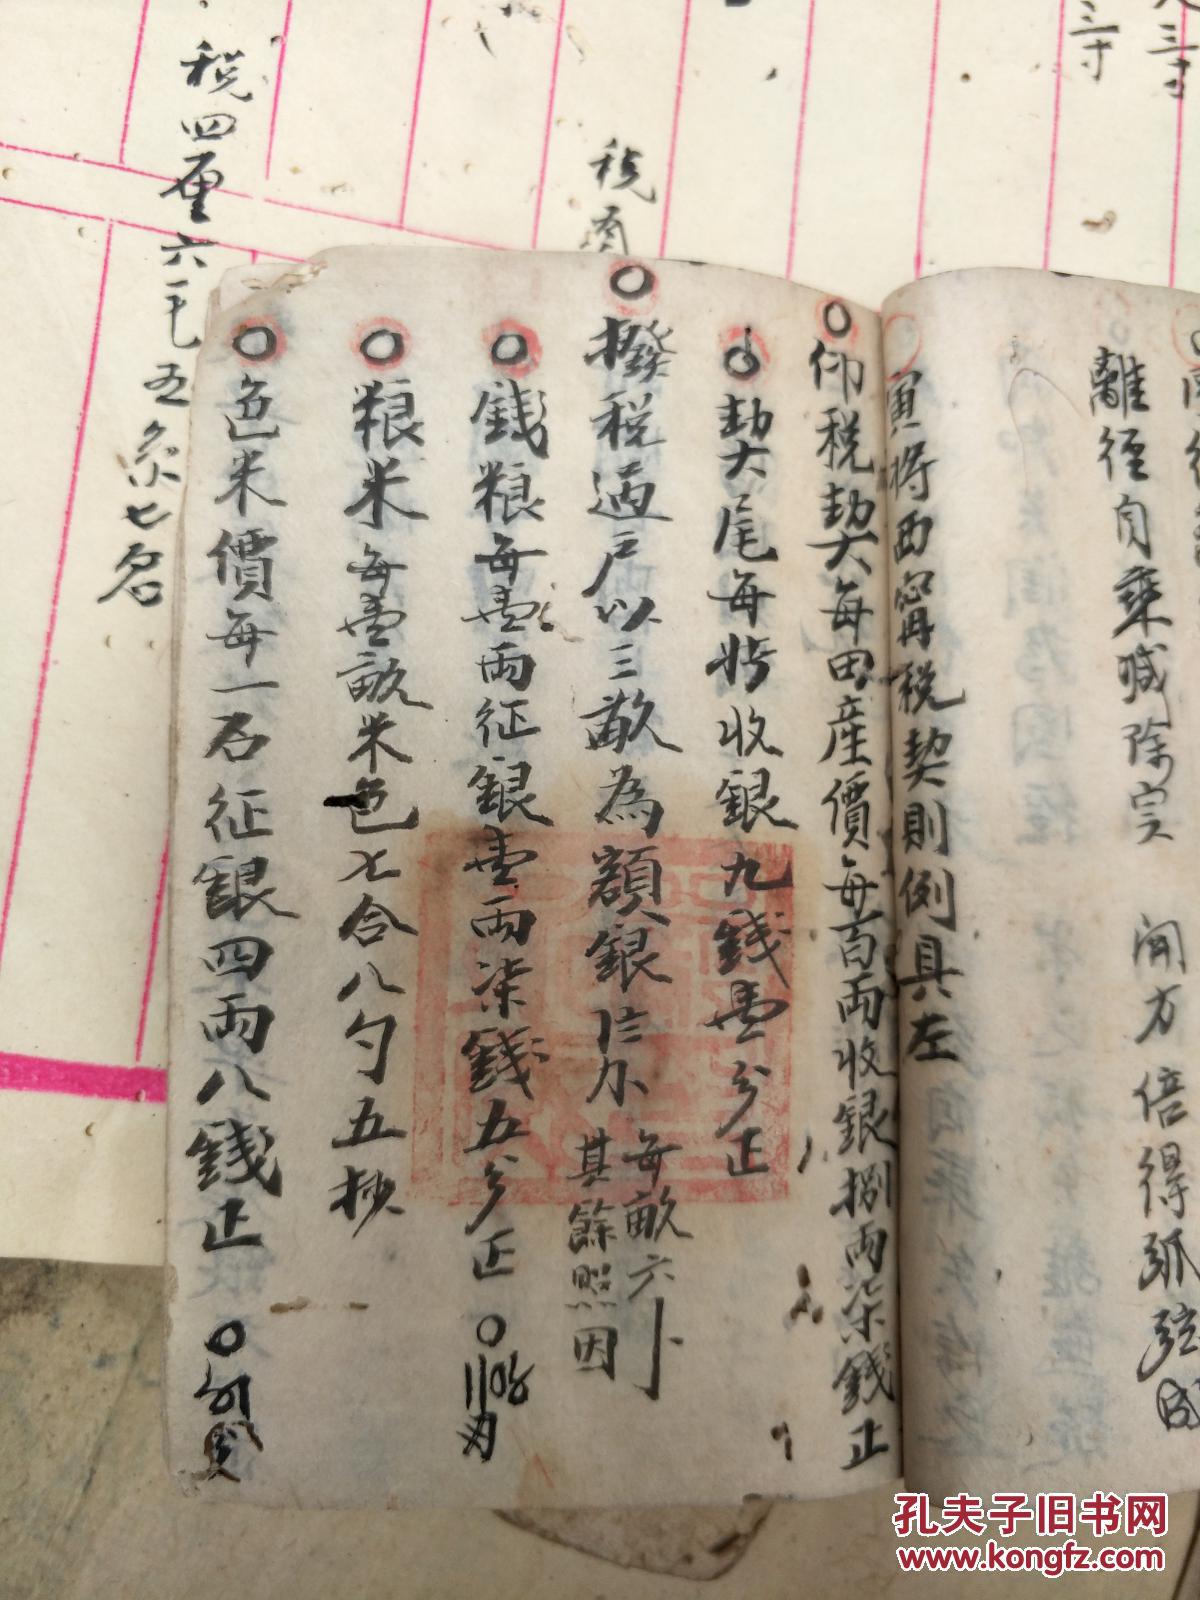 三寸
三寸
税
税四厘六毛五糸七忽
離徑自乘減除实 開方倍得弧弦
將西寧税契則例具左
仰税契每田產價每百両收銀捌両柒錢正
契尾每收銀九錢壹分正
撥税過户以三畝為額銀 每畝六 其餘照因
錢粮每壹両征銀壹両柒錢五分正
粮米每壹畝米色七合八勺五抄
色米價每一石征銀四両八錢正
孔夫子旧书网
www.kongfz.com